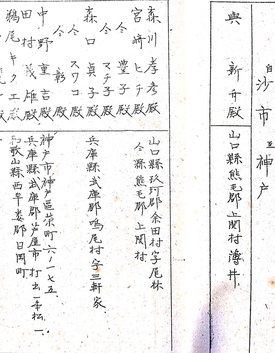 自沙市至神戸
與新丹殿
山口縣熊毛郡上関村薄井
森川孝彦殿
山口縣玖珂郡余田村字尾林
宮崎ヒチ殿
仝縣熊毛郡上関村
仝豊子殿
仝マチ子殿
森口貞子殿
兵庫縣武庫郡鳴尾村字三軒家
仝スワコ殿
仝彰殿
中野重吉殿
神戸市神戸區栄町六ノ一七五
田村義雄殿
兵庫縣武庫郡芦屋市打出一本松一
鵜尾キクエ殿
和歌山縣西牟婁郡日岡町